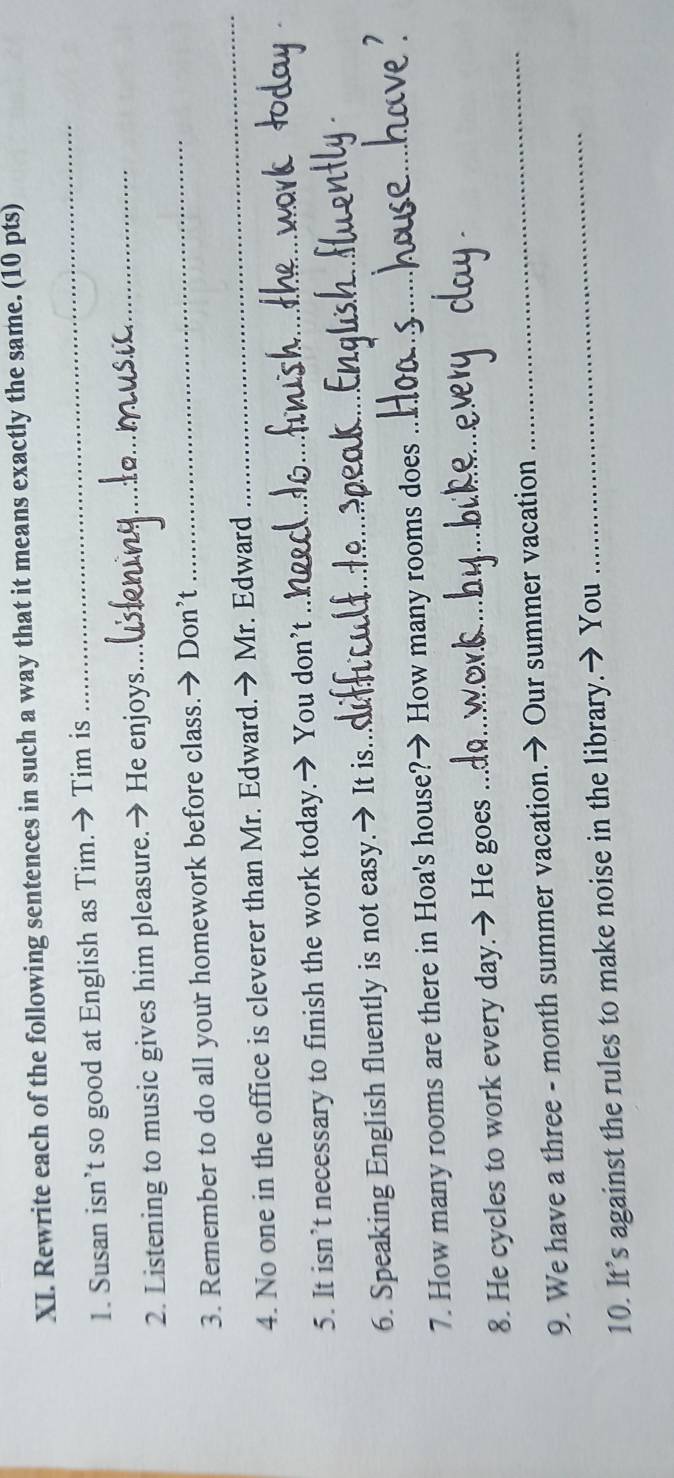 XI. Rewrite each of the following sentences in such a way that it means exactly the same. (10 pts)
1. Susan isn't so good at English as Tim.→ Tim is
2. Listening to music gives him pleasure.→ He enjoys listening to music
3. Remember to do all your homework before class.→ Don't
4. No one in the office is cleverer than Mr. Edward.→ Mr. Edward
5. It isn't necessary to finish the work today.→ You don't need to finish the work today.
6. Speaking English fluently is not easy.→ It is difficult to speak English fluently.
7. How many rooms are there in Hoa's house?→ How many rooms does Hoa s house have?
8. He cycles to work every day.→ He goes do work by bike every day.
9. We have a three - month summer vacation.→ Our summer vacation
10. It's against the rules to make noise in the library.→ You